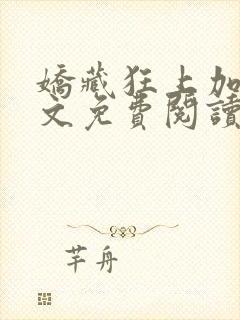 嬌藏狂上加
文免費閱讀
芊舟